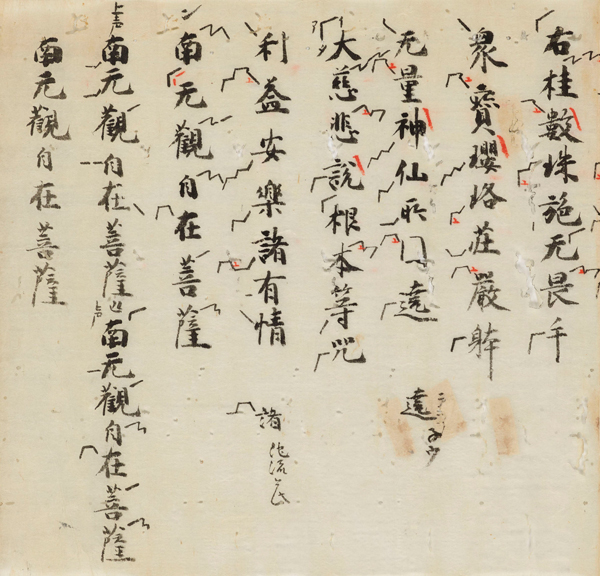 右桂數珠施无畏手
衆寶瓔珞莊嚴躰
无量神仙所囗遶
大慈悲説根本等咒
利益安樂諸有情
南无觀自在菩薩
南无觀自在菩薩 南无觀自在菩薩
南无觀自在菩薩
遶
諸